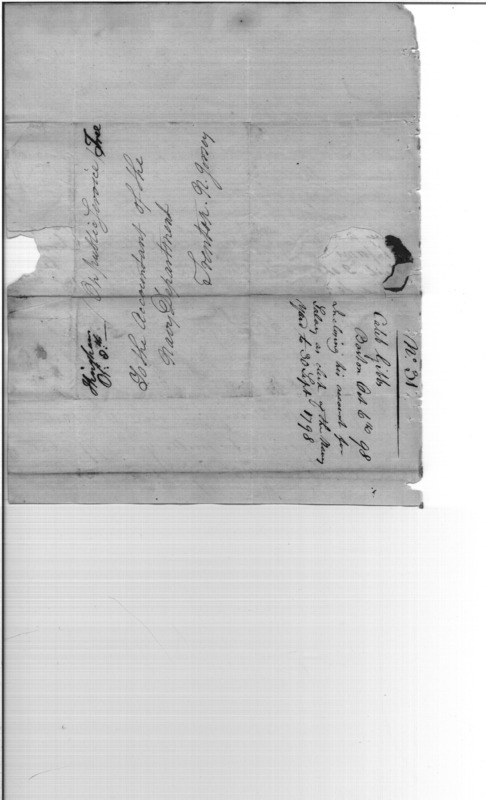 On public Service Free
To the Accountant of the
Navy Department
Trenton. N. Jersey
Hingham
O. 8th
No 31
Caleb Gibbs
Boston Oct 6th 98
Inclosing his account for
Salary as clerk of the Navy
Yard to 30 Septr 1798